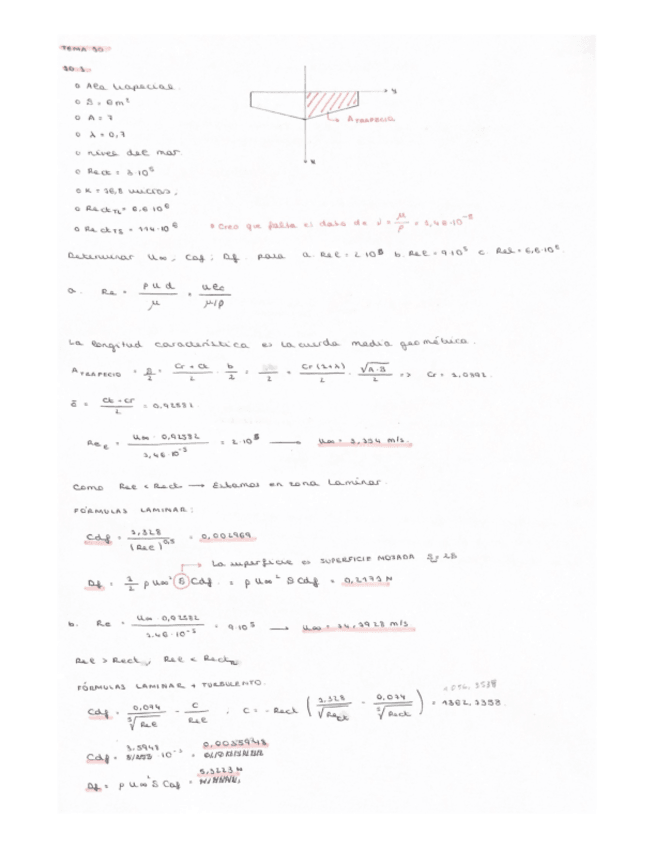 TEMA 10
10.1
o Ala trapecial.
o S = 6 m²
o A = 7
o λ = 0,7
o nivel del mar.
o Rect = 3·10⁵
o K = 76,8
o Rect = 6.6·10⁶
o Rect = 114·10⁶
y
A TRAPECIO
x
* Creo que falta el dato de ν = μ/ρ = 1,46·10⁻⁵
Determinar U∞; Cdf; Df para a. b. Rel = 9·10⁵ c.
a. Re = ρ u d / μ = u l c / μ/ρ
La longitud característica es la cuerda media geométrica.
A TRAPECIO = S/2 = Cr + Ct / 2 · b/2 = Cr(1+λ) / 2 · √A·S / 2 => Cr = 1,0892.
c̄ = Ct + Cr / 2 = 0,92582.
Re = U∞ · 0,92582 / 1,46·10⁻⁵ = 2·10⁵ → U∞ = 3,154 m/s.
Como Rel < Rect → Estamos en zona Laminar.
FÓRMULAS LAMINAR:
Cdf = 1,328 / (Rel)^0,5 = 0,002969
La superficie es SUPERFICIE MOJADA = 2S
Df = 1/2 ρ U∞² S Cdf = ρ U∞² S Cdf = 0,2173 N
b. Re = U∞ · 0,92582 / 1.46·10⁻⁵ = 9·10⁵ → U∞ = 14,1928 m/s.
Rel > Rect, Rel < Rect
FÓRMULAS LAMINAR + TURBULENTO.
Cdf = 0,074 / ⁵√Rel - C / Rel ; C = -Rect ( 1.328 / √Rect - 0,074 / ⁵√Rect ) = 1362,3358.
Cdf = 3.5948 · 10⁻³ = 0,0035948
Df = ρ U∞² S Cdf = 5,3223 N